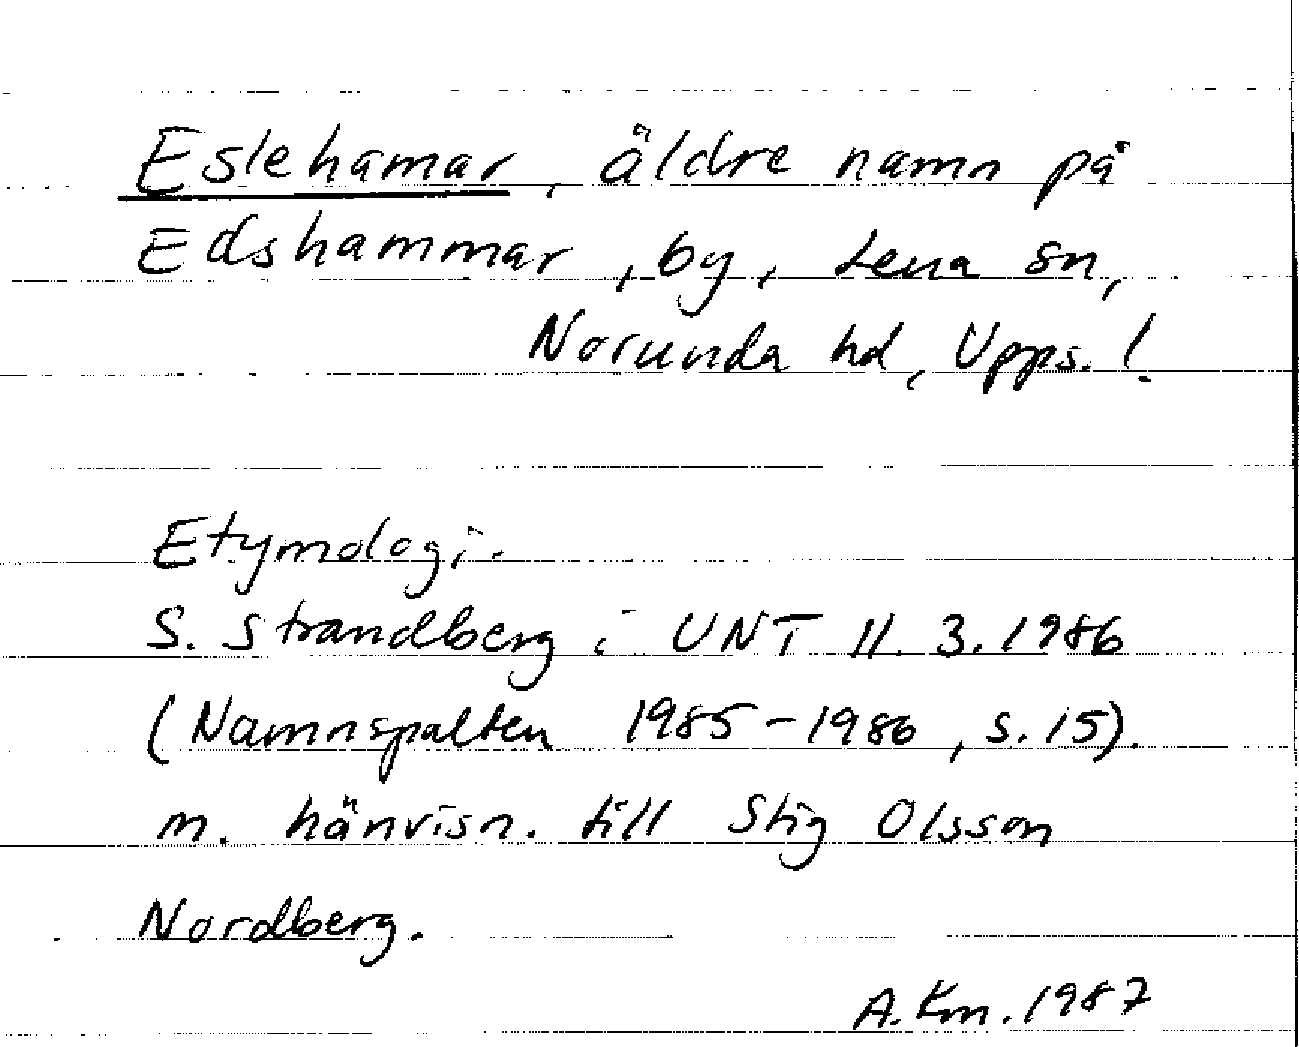 Eslehamar, äldre namn på
Edshammar, by, Lena sn,
Norunda hd, Upps. l.
Etymologi.
S. Strandberg i UNT 11.3.1986
(Namnspalten 1985-1986, s. 15).
m. hänvisn. till Stig Olsson
Nordberg.
A. Km. 1987